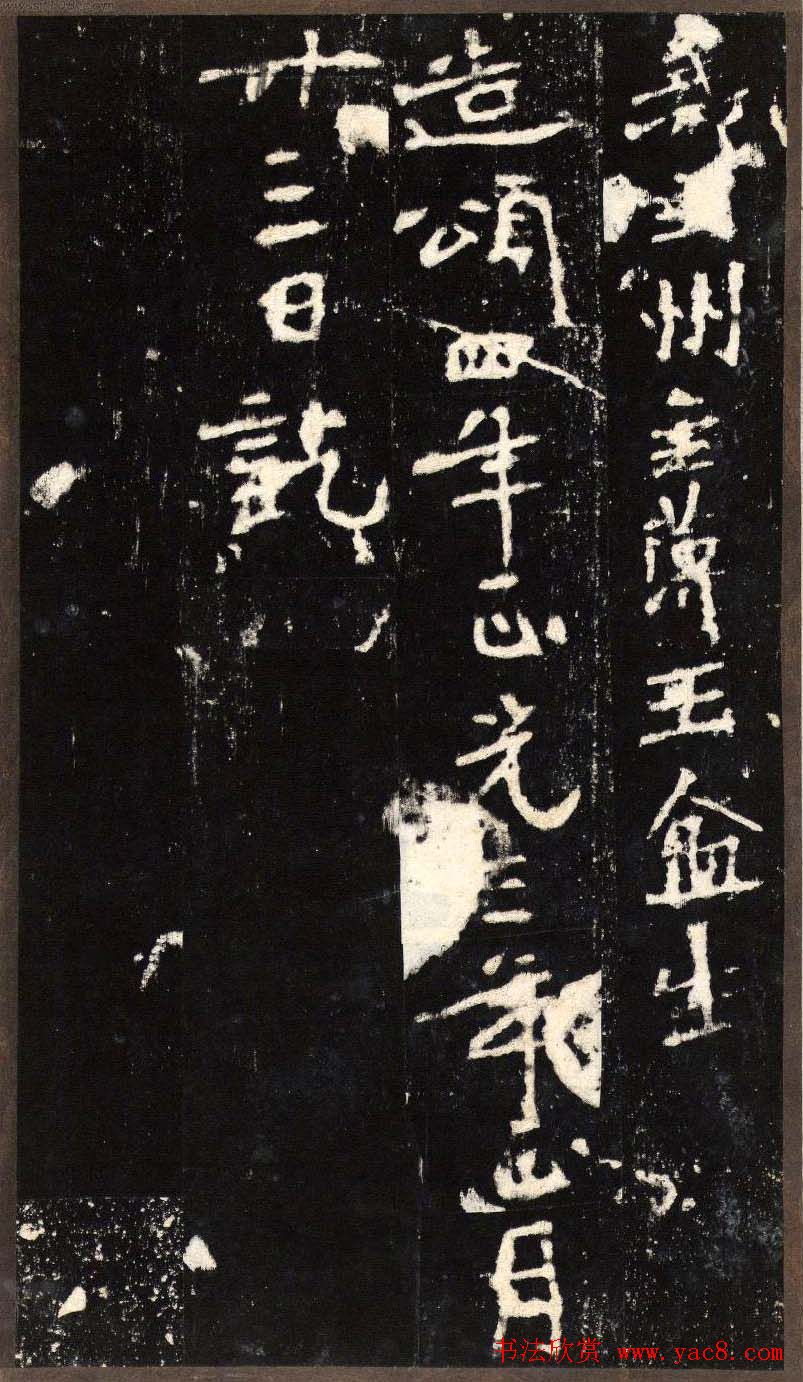 義州主薄王盆生
造頌四年正光三年正月
廿三日訖
书法欣赏 www.yac8.com